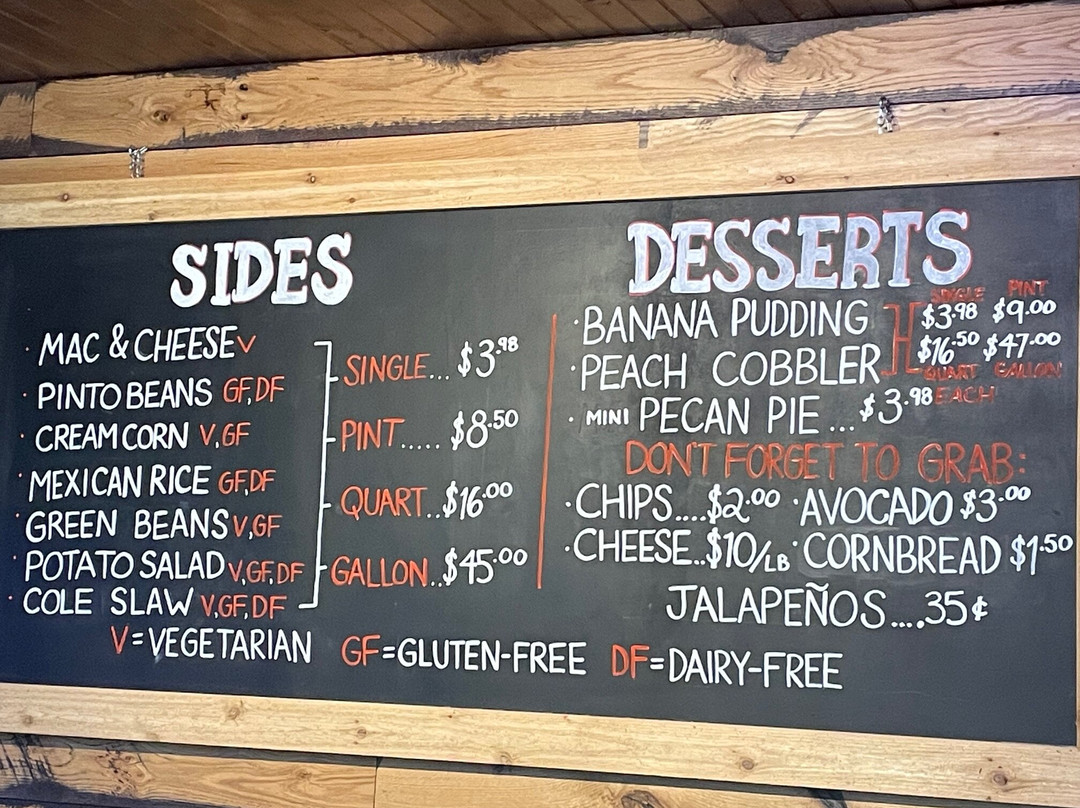 SIDES
· MAC & CHEESE V
· PINTO BEANS GF,DF
· CREAM CORN V,GF
· MEXICAN RICE GF,DF
· GREEN BEANS V,GF
· POTATO SALAD V,GF,DF
· COLE SLAW V,GF,DF
SINGLE... $3.98
PINT..... $8.50
QUART..$16.00
GALLON..$45.00
DESSERTS
SINGLE PINT
· BANANA PUDDING $3.98 $9.00
· PEACH COBBLER $16.50 $47.00
QUART GALLON
· MINI PECAN PIE ...$3.98 EACH
DON'T FORGET TO GRAB:
· CHIPS....$2.00 · AVOCADO $3.00
· CHEESE..$10/LB · CORNBREAD $1.50
JALAPEÑOS....35¢
V=VEGETARIAN GF=GLUTEN-FREE DF=DAIRY-FREE